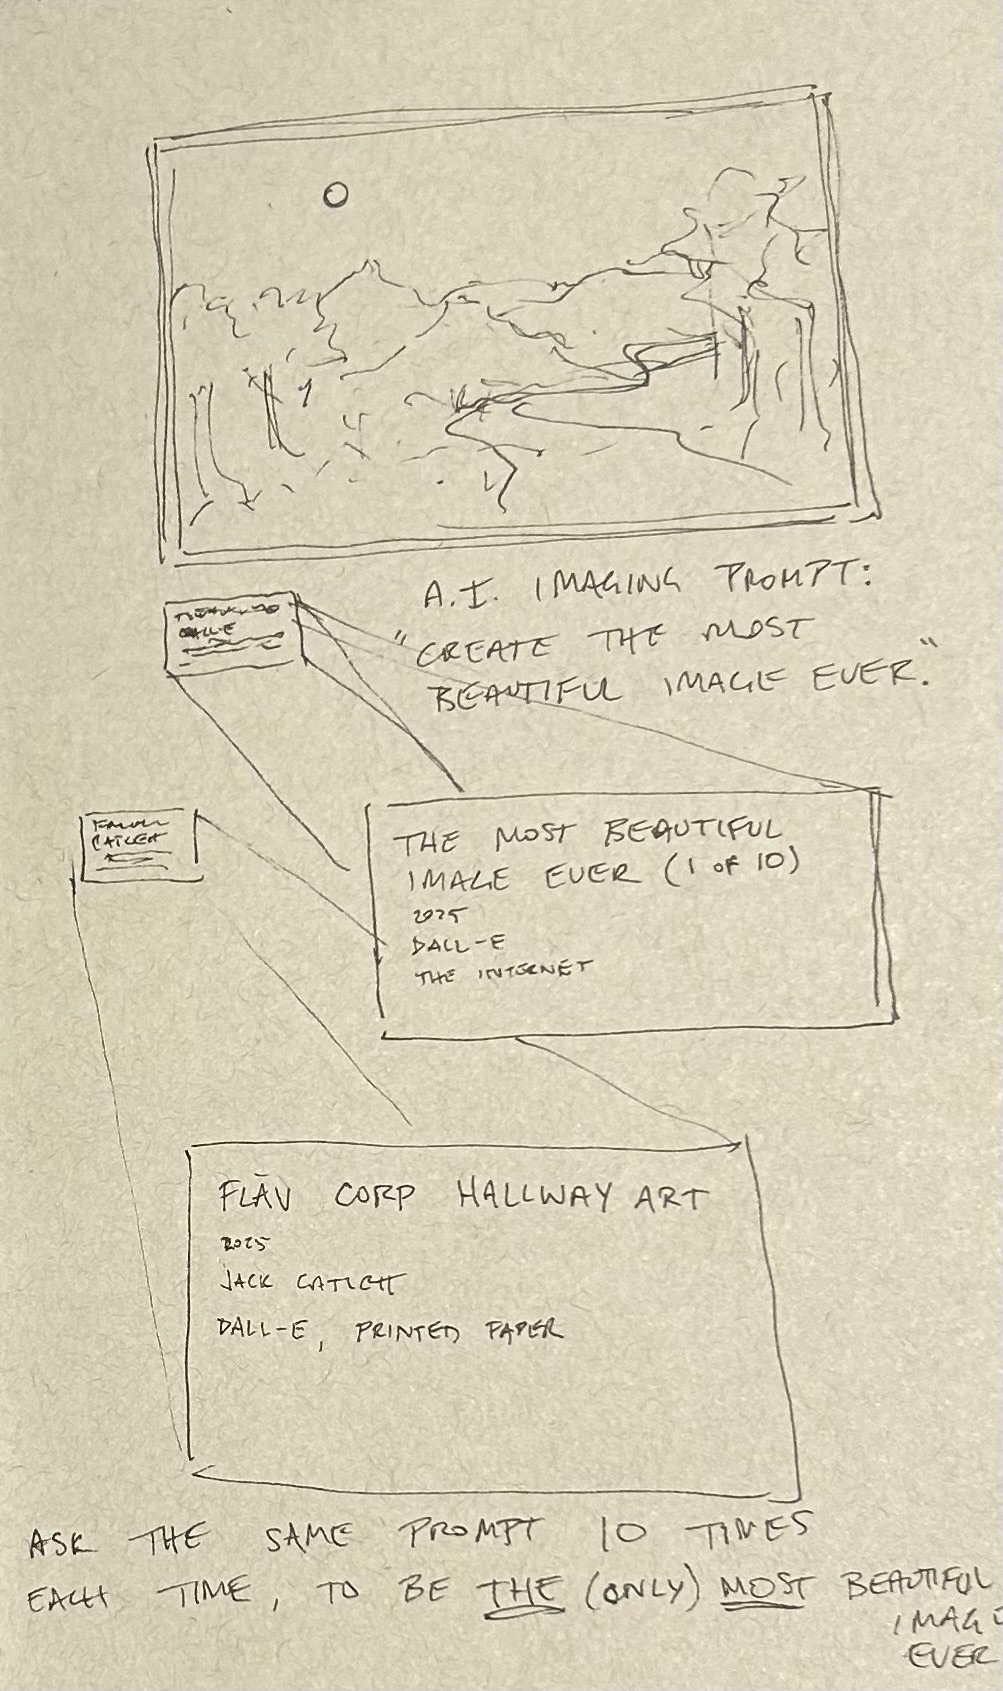 A.I. IMAGING PROMPT:
"CREATE THE MOST
BEAUTIFUL IMAGE EVER."
DALL-E
CATLETT
THE MOST BEAUTIFUL
IMAGE EVER (1 OF 10)
2025
DALL-E
THE INTERNET
FLĀV CORP HALLWAY ART
2025
JACK CATLETT
DALL-E, PRINTED PAPER
ASK THE SAME PROMPT 10 TIMES
EACH TIME, TO BE THE (ONLY) MOST BEAUTIFUL
IMAGE
EVER